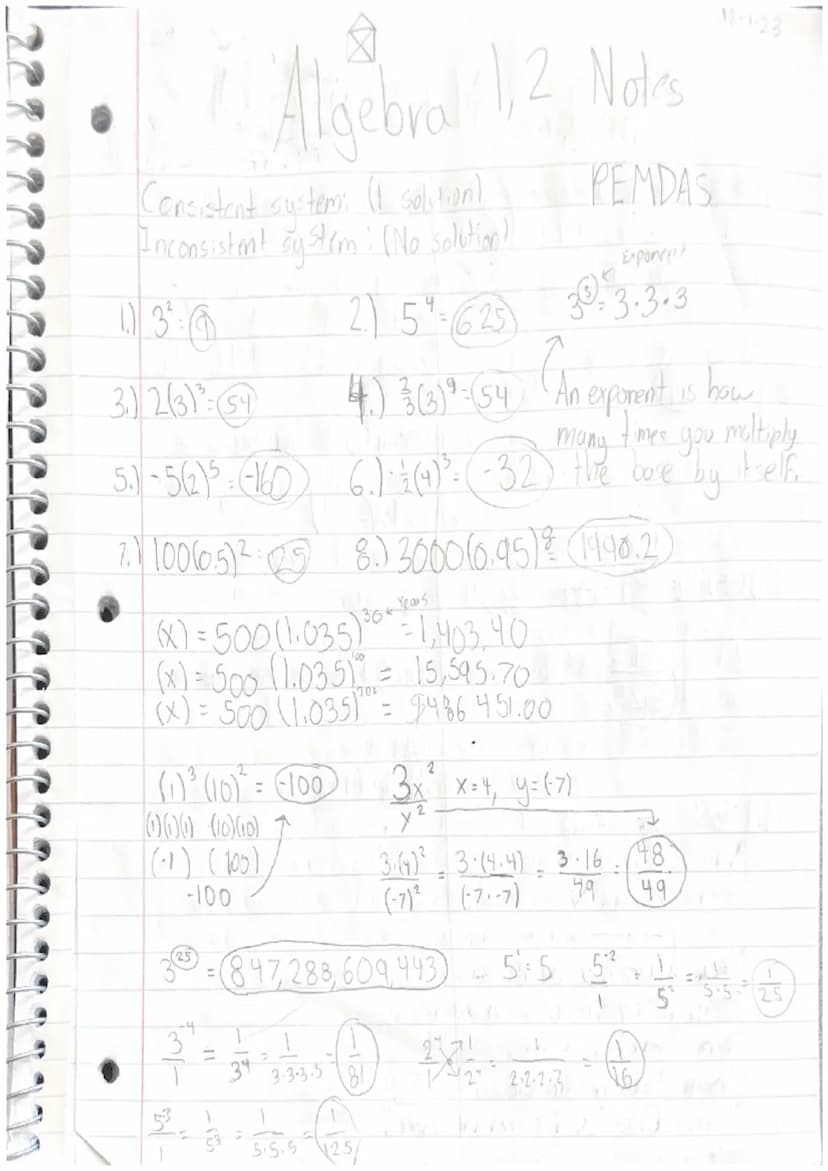 11-1-23
Algebra 1,2 Notes
PEMDAS
Consistent system: (1 solution)
Inconsistent system: (No solution)
Exponent
1.) 3² = 9 2.) 5⁴ = 625 3³ = 3·3·3
3.) 2(3)³ = 54 4.) 2/3(3)⁴ = 54 An exponent is how
many times you multiply
5.) -5(2)⁵ = -160 6.) -1/2(4)³ = -32 the base by itself.
7.) 100(0.5)² = 25 8.) 3000(0.95)⁸ = 1990.2
(x) = 500(1.035)³⁰ ← Years = 1,403.40
(x) = 500(1.035)¹⁰⁰ = 15,595.70
(x) = 500(1.035)²⁰⁰ = 9486 451.00
(1)³(10)² = -100 3x²/y² x=4, y=(-7)
(1)(1)(1) (10)(10)
(-1) (100) 3·(4)²/(-7)² = 3·(4·4)/(-7·-7) = 3·16/49 = 48/49
-100
3²⁵ = 847,288,609,443 5¹ = 5 5⁻²/1 = 1/5² = 1/5·5 = 1/25
3⁻⁴/1 = 1/3⁴ = 1/3·3·3·3 = 1/81 2⁻⁴/1 1/2⁴ = 1/2·2·2·2 = 1/16
5⁻³/1 = 1/5³ = 1/5·5·5 = 1/125